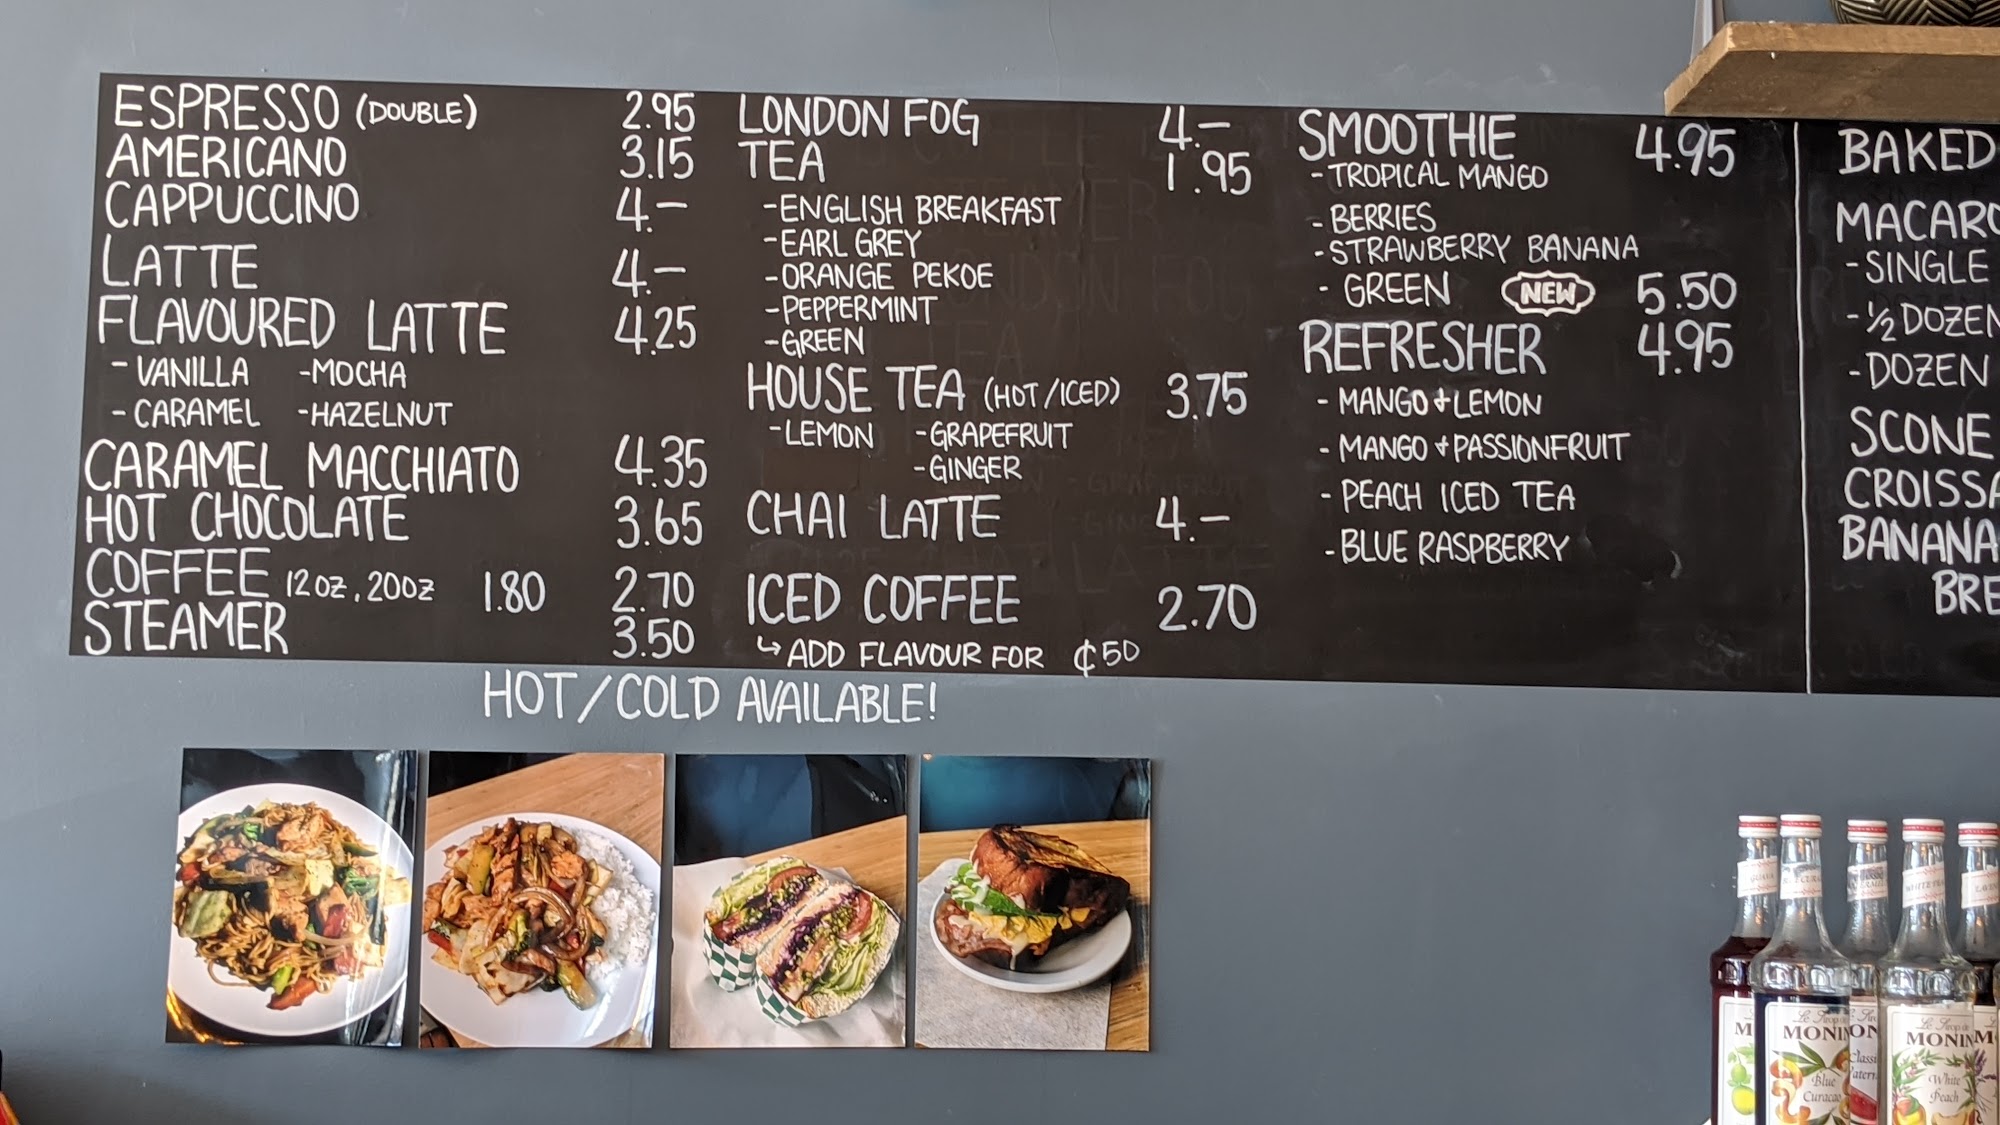 ESPRESSO (DOUBLE) 2.95
AMERICANO 3.15
CAPPUCCINO 4.-
LATTE 4.-
FLAVOURED LATTE 4.25
- VANILLA - MOCHA
- CARAMEL - HAZELNUT
CARAMEL MACCHIATO 4.35
HOT CHOCOLATE 3.65
COFFEE 12oz, 20oz 1.80 2.70
STEAMER 3.50
LONDON FOG 4.-
TEA 1.95
- ENGLISH BREAKFAST
- EARL GREY
- ORANGE PEKOE
- PEPPERMINT
- GREEN
HOUSE TEA (HOT/ICED) 3.75
- LEMON - GRAPEFRUIT
- GINGER
CHAI LATTE 4.-
ICED COFFEE 2.70
↳ ADD FLAVOUR FOR ¢50
SMOOTHIE 4.95
- TROPICAL MANGO
- BERRIES
- STRAWBERRY BANANA
- GREEN NEW 5.50
REFRESHER 4.95
- MANGO + LEMON
- MANGO + PASSIONFRUIT
- PEACH ICED TEA
- BLUE RASPBERRY
BAKED
MACARO
- SINGLE
- 1/2 DOZEN
- DOZEN
SCONE
CROISSA
BANANA
BRE
HOT/COLD AVAILABLE!
GUAVA
WHITE PEACH
Le Sirop de
MONIN
Blue
Curacao
Le Sirop de
MONIN
White
Peach